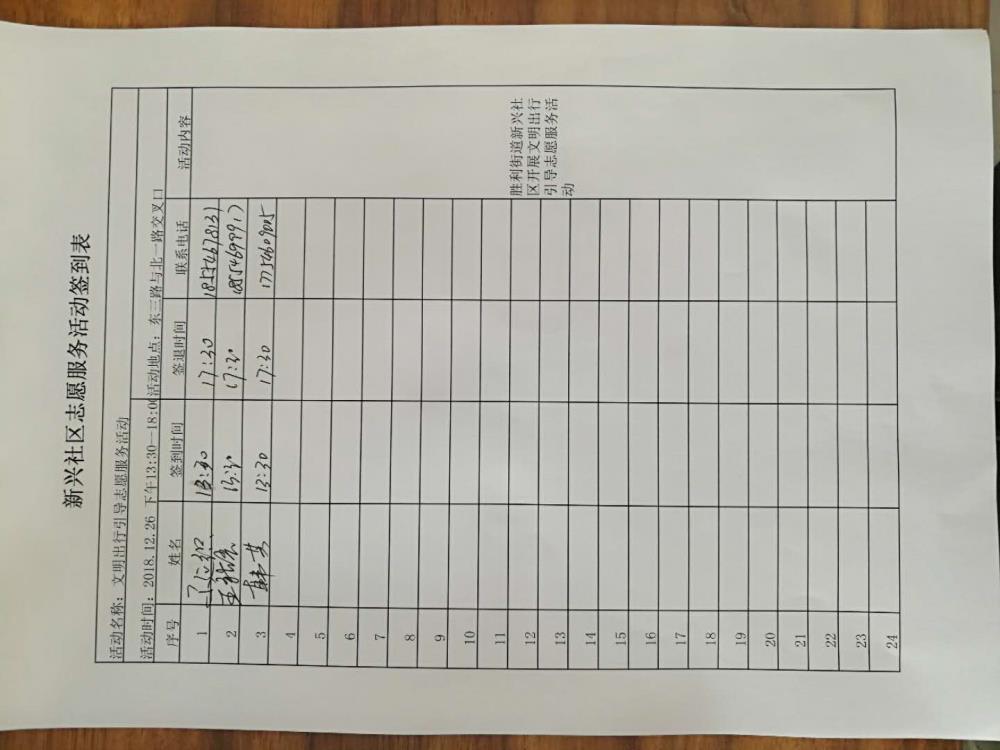 新兴社区志愿服务活动签到表
活动名称：文明出行引导志愿服务活动
活动时间：2018.12.26 下午13:30—18:00 活动地点：东三路与北一路交叉口
序号 姓名 签到时间 签退时间 联系电话 活动内容
1 13:30 17:30
2 13:30 17:30
3 13:30 17:30
4
5
6
7
8
9
10
11
12
13
14
15
16
17
18
19
20
21
22
23
24
胜利街道新兴社
区开展文明出行
引导志愿服务活
动